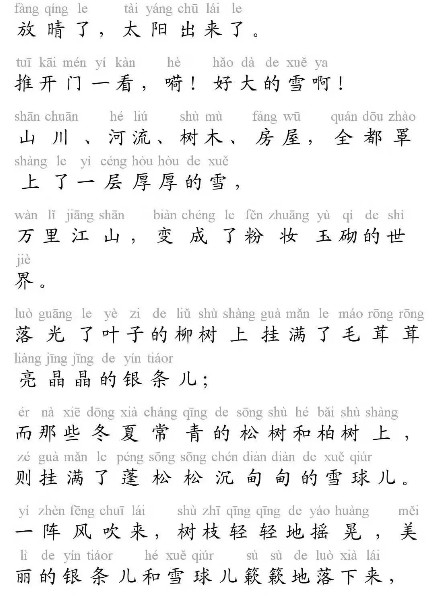 fàng qíng le tài yáng chū lái le
放晴了，太阳出来了。
tuī kāi mén yí kàn hè hǎo dà de xuě ya
推开门一看，嗬！好大的雪啊！
shān chuān hé liú shù mù fáng wū quán dōu zhào
山川、河流、树木、房屋，全都罩
shàng le yì céng hòu hòu de xuě
上了一层厚厚的雪，
wàn lǐ jiāng shān biàn chéng le fěn zhuāng yù qì de shì
万里江山，变成了粉妆玉砌的世
jiè
界。
luò guāng le yè zi de liǔ shù shàng guà mǎn le máo rōng rōng
落光了叶子的柳树上挂满了毛茸茸
liàng jīng jīng de yín tiáor
亮晶晶的银条儿；
ér nà xiē dōng xià cháng qīng de sōng shù hé bǎi shù shàng
而那些冬夏常青的松树和柏树上，
zé guà mǎn le péng sōng sōng chén diàn diàn de xuě qiúr
则挂满了蓬松松沉甸甸的雪球儿。
yí zhèn fēng chuī lái shù zhī qīng qīng de yáo huàng měi
一阵风吹来，树枝轻轻地摇晃，美
lì de yín tiáor hé xuě qiúr sù sù de luò xià lái
丽的银条儿和雪球儿簌簌地落下来，